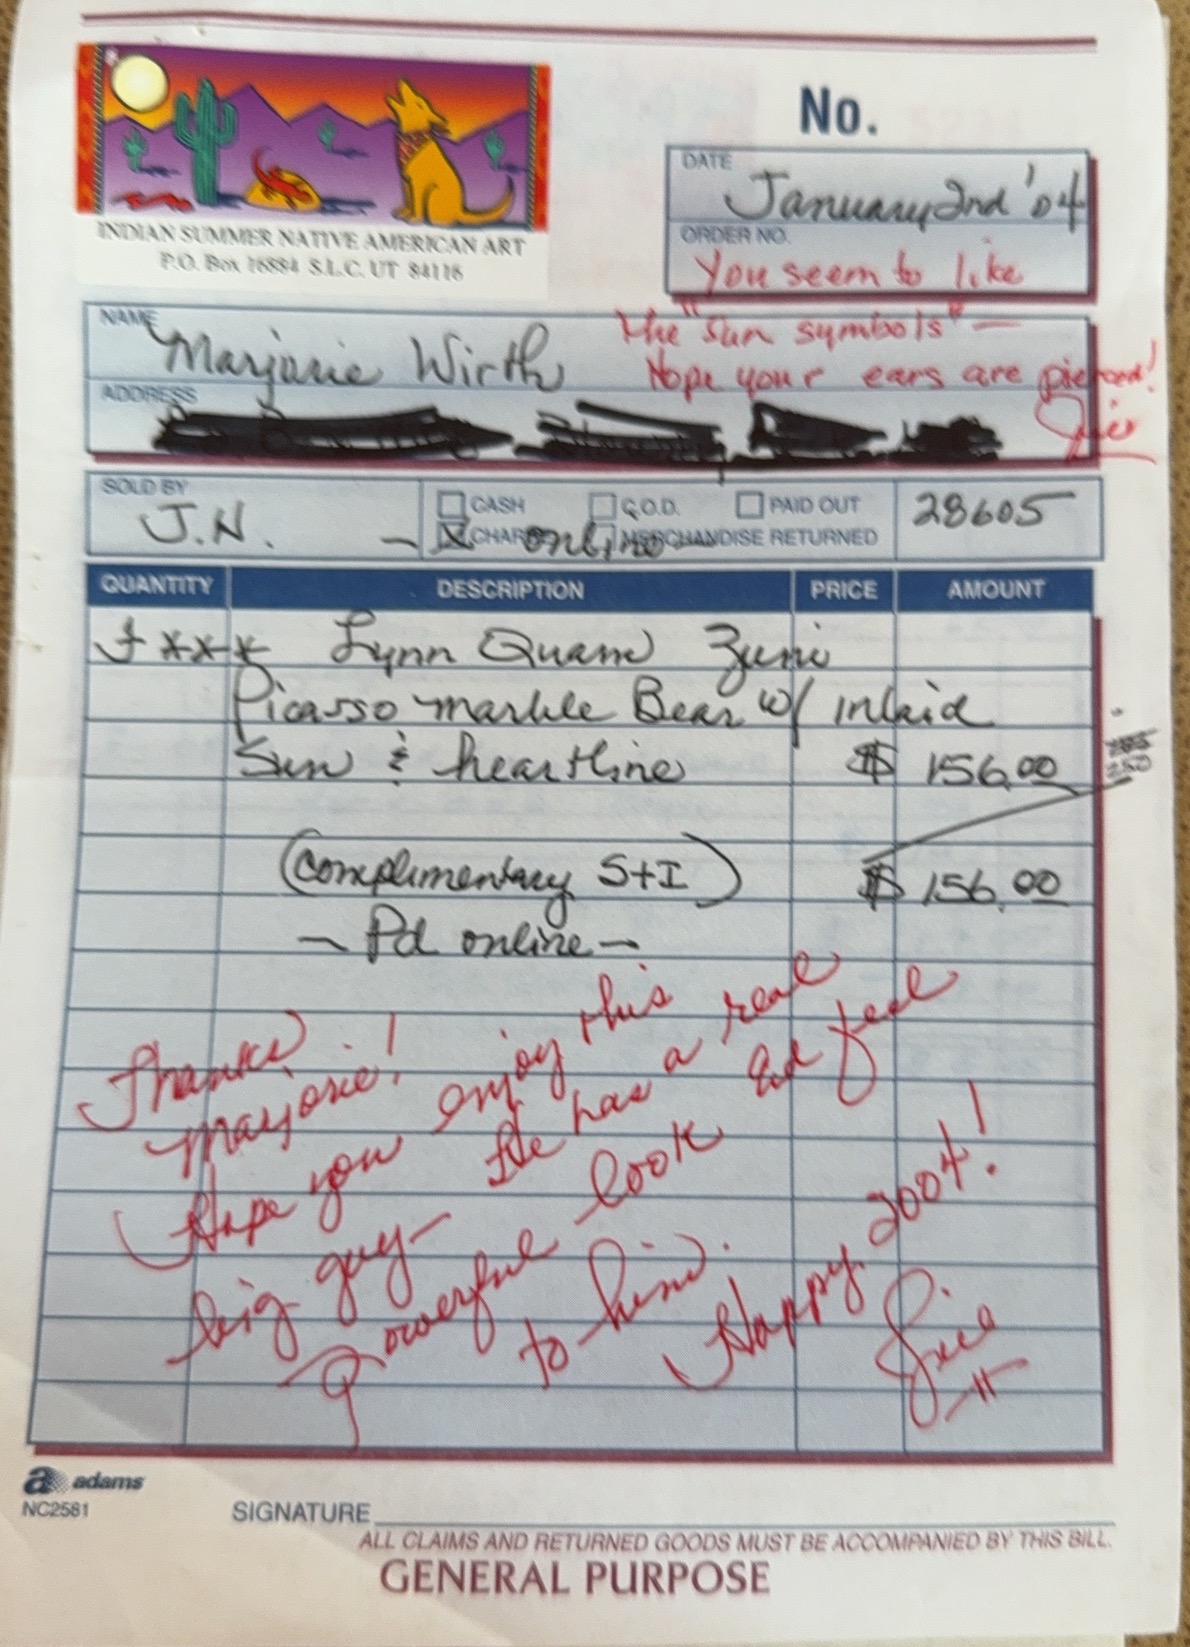 No.
DATE
January 2nd '04
INDIAN SUMMER NATIVE AMERICAN ART
P.O. Box 16884 S.L.C. UT 84116
ORDER NO.
You seem to like
the "Sun symbols" —
Hope your ears are pierced!
NAME
Marjorie Wirth
ADDRESS
SOLD BY
J.N.
CASH
C.O.D.
PAID OUT
28605
— X CHARGE online —
MERCHANDISE RETURNED
QUANTITY DESCRIPTION PRICE AMOUNT
*** Lynn Quam Zuni
Picasso marble Bear w/ inlaid
Sun & heartline $ 156.00
250
(Complimentary S+I) $ 156.00
— Pd online —
Thanks
Marjorie!
Hope you enjoy this
big guy — He has a real
Powerful look and feel
to him. Happy 2004!
adams
NC2581
SIGNATURE
ALL CLAIMS AND RETURNED GOODS MUST BE ACCOMPANIED BY THIS BILL.
GENERAL PURPOSE